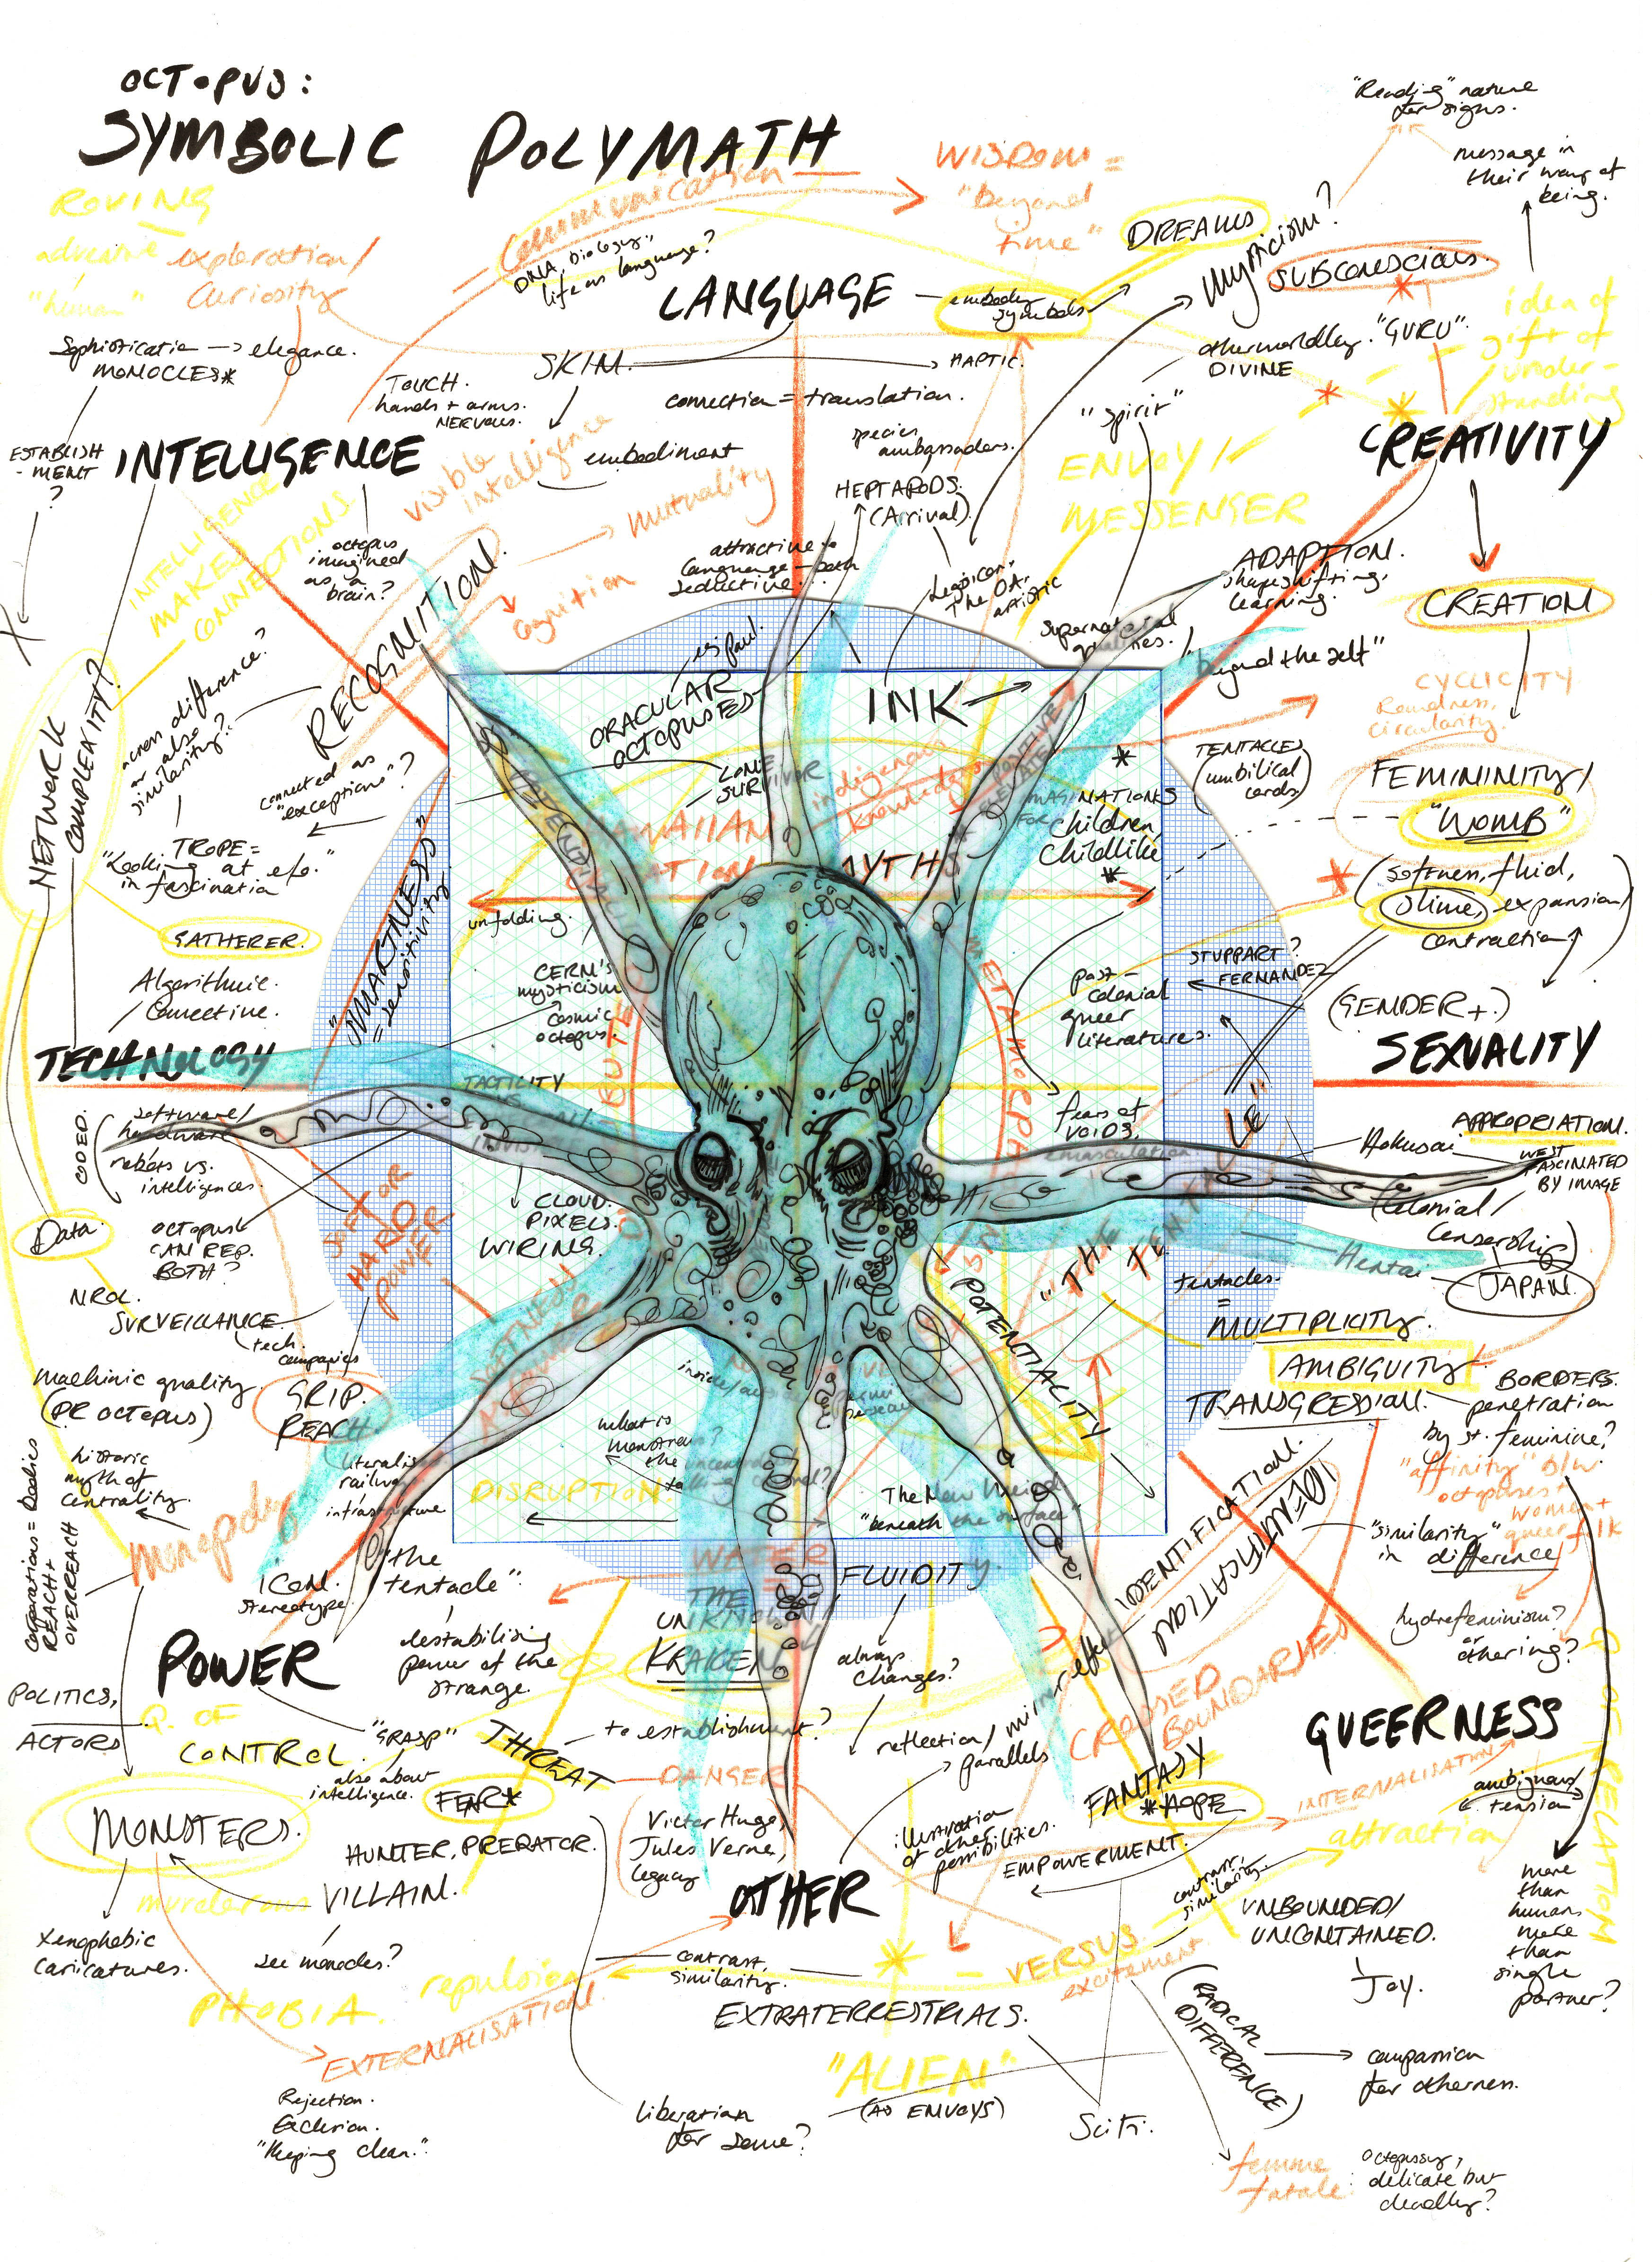 OCTOPUS:
SYMBOLIC POLYMATH
ROVING
exploration/
curiosity
"human"
Communication
DNA, biology,
life as language?
WISDOM =
"beyond
time"
"Reading" nature
for signs.
message in
their way of
being.
DREAMS
mysticism?
SUBCONSCIOUS.
idea of
gift of
under-
standing
LANGUAGE
embody
symbols
elegance.
MONOCLES*
SKIN
HAPTIC.
TOUCH.
hands + arms.
NERVOUS.
connection = translation.
otherworldly. "GURU".
DIVINE
"spirit"
ESTABLISH
-MENT
?
INTELLIGENCE
visible
intelligence
embodiment
species
ambassadors.
HEPTAPODS.
(Arrival).
ENVOY/
MESSENGER
CREATIVITY
INTELLIGENCE
MAKES
CONNECTIONS.
octopus
imagined
as a
brain?
RECOGNITION.
mutuality
cognition
attractive
language - both
seductive.
The OA,
artistic
ADAPTION.
shapeshifting,
learning.
CREATION
supernatural
qualities.
"beyond the self"
across difference?
or also
similarity?
ORACULAR
OCTOPUSES
eg Paul.
INK
CYCLICITY
Roundness,
circularity.
NETWORK
COMPLEXITY?
connected as
"exceptions"?
LONE
SURVIVOR
indigenous
knowledges
TENTACLES
(umbilical
cords)
FEMININITY/
"WOMB"
TROPE =
"Looking at e/o."
in fascination
HAWAIIAN
CREATION MYTHS
IMAGINATIONS
FOR children,
childlike
(softness, fluid,
slime, expansion/
contraction)
GATHERER.
"SMARTNESS"
= sensitivity.
unfolding.
Algorithmic.
Connective.
CERN's
mysticism
cosmic
octopus.
post-
colonial
queer
literatures.
STUPPART?
FERNANDEZ
(GENDER+.)
TECHNOLOGY
SEXUALITY
TACTILITY
fears of
voids,
emasculation.
CODED.
software/
hardware
robots vs.
intelligences.
Hokusai
APPROPRIATION.
WEST
FASCINATED
BY IMAGE
Colonial/
censorship)
Data.
OCTOPUS
CAN REP.
BOTH?
SOFT OR
HARD
POWER
CLOUD.
PIXELS.
WIRING.
Hentai
JAPAN.
tentacles.
=
MULTIPLICITY.
AMBIGUITY
TRANSGRESSION.
NROL
SURVEILLANCE
tech
companies
POTENTIALITY
BORDERS.
penetration
by st. feminine?
machinic quality.
(PR OCTOPUS)
GRIP.
REACH.
literalised
railway
infrastructure
"affinity" b/w
octopuses +
women +
queer folk
historic
myth of
centrality.
Corporations = bodies
REACH +
OVERREACH
monopoly
what is
monstrous?
DISRUPTION.
The New Weird.
"beneath the surface"
IDENTIFICATION.
IDENTIFICATION
"similarity"
in difference
ICON.
stereotype.
"the
tentacle".
WATER
THE
UNKNOWN/
KRAKEN
FLUIDITY.
hydrofeminism?
or
othering?
POWER
destabilising
power of the
strange.
always
changes?
POLITICS,
ACTORS
P. OF
CONTROL.
"GRASP"
also about
intelligence.
THREAT
to establishment?
reflection/ mirror effect
parallels
CROSSED
BOUNDARIES
QUEERNESS
FEAR*
DANGER
FANTASY
*HOPE
INTERNALISATION
ambiguous/
tension
MONSTERS.
HUNTER, PREDATOR.
Victor Hugo,
Jules Verne,
legacy
illustration
of other
possibilities.
EMPOWERMENT.
attraction
murderous
VILLAIN.
OTHER
contrast,
similarity.
UNBOUNDED/
UNCONTAINED.
Joy.
more
than
human,
more
than
single
partner?
xenophobic
caricatures.
see monocles?
repulsion
PHOBIA.
EXTERNALISATION.
contrast,
similarity.
VERSUS
excitement
EXTRATERRESTRIALS.
(RADICAL
DIFFERENCE)
"ALIEN"
(AS ENVOYS)
compassion
for otherness.
Rejection.
Exclusion.
"Keeping clean."
liberation
for some?
SciFi.
femme
fatale:
octopussy,
delicate but
deadly?